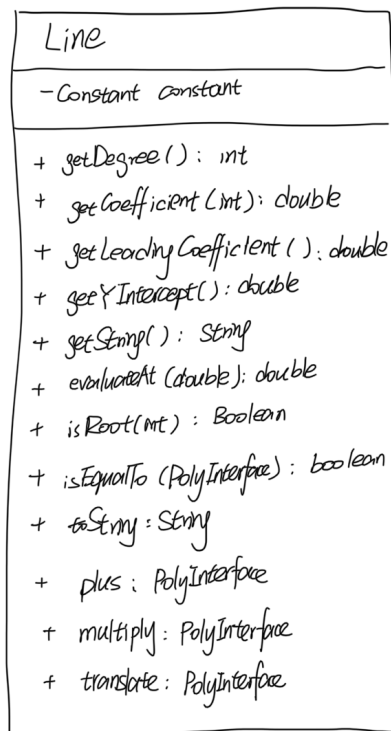 Line
- Constant constant
+ getDegree(): int
+ getCoefficient(int): double
+ getLeadingCoefficient(): double
+ getYIntercept(): double
+ getString(): String
+ evaluateAt(double): double
+ isRoot(int): Boolean
+ isEqualTo(PolyInterface): boolean
+ toString: String
+ plus: PolyInterface
+ multiply: PolyInterface
+ translate: PolyInterface